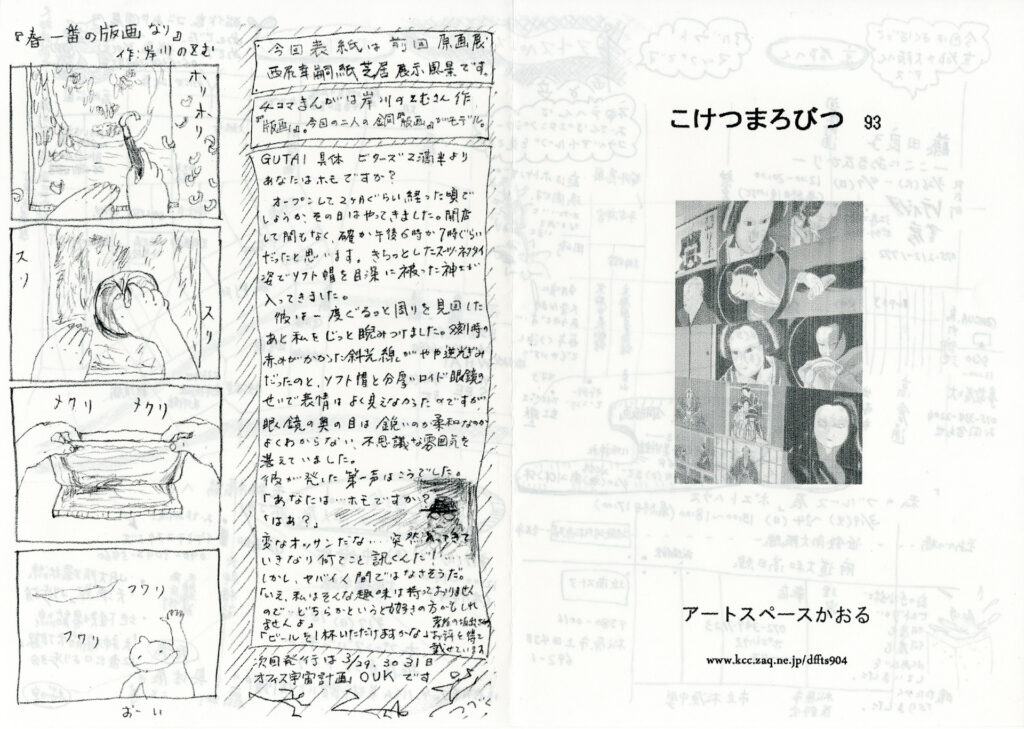 『春一番の版画なり』
作:岸川のぞむ
ホリホリ
スリ
スリ
メクリ メクリ
フワリ
フワリ
おーい
今回表紙は前回原画展
西辰幸嗣紙芝居展示風景です。
4コマまんがは岸川のぞむさん作
『版画』。今回の二人の銅『版画』がモデル。
GUTAI 具体 ピターズ2満車より
あなたはホモですか?
オープンして2ヶ月ぐらい経った頃で
しょうか、その日はやってきました。開店
して間もなく、確か午後6時か7時ぐらい
だったと思います。きちっとしたスーツ・ネクタイ
姿でソフト帽を目深に被った紳士が
入ってきました。
彼は一度ぐるっと周りを見回した
あと私をじっと睨みつけました。夕刻時の
赤みがかかった斜光線がやや逆光ぎみ
だったのと、ソフト帽と分厚いロイド眼鏡の
せいで表情はよく見えなかったのですが
眼鏡の奥の目は鋭いのか柔和なのか
よくわからない、不思議な雰囲気を
湛えていました。
彼が発した第一声はこうでした。
「あなたは…ホモですか?」
「はぁ?」
変なオッサンだな… 突然入ってきて
いきなり何てこと訊くんだ!
しかし、ヤバイ人間ではなさそうだ。
「いえ、私はそんな趣味は持っておりません
ので…どちらかというと女好きの方かもしれ
ませんよ」
「ビールを1杯いただけますかな」
お許を得て
載せています
次回発行は 3/29.30 31日
オフィス宇宙計画 OUK です
つづく
こけつまろびつ 93
アートスペースかおる
www.kcc.zaq.ne.jp/dffts904